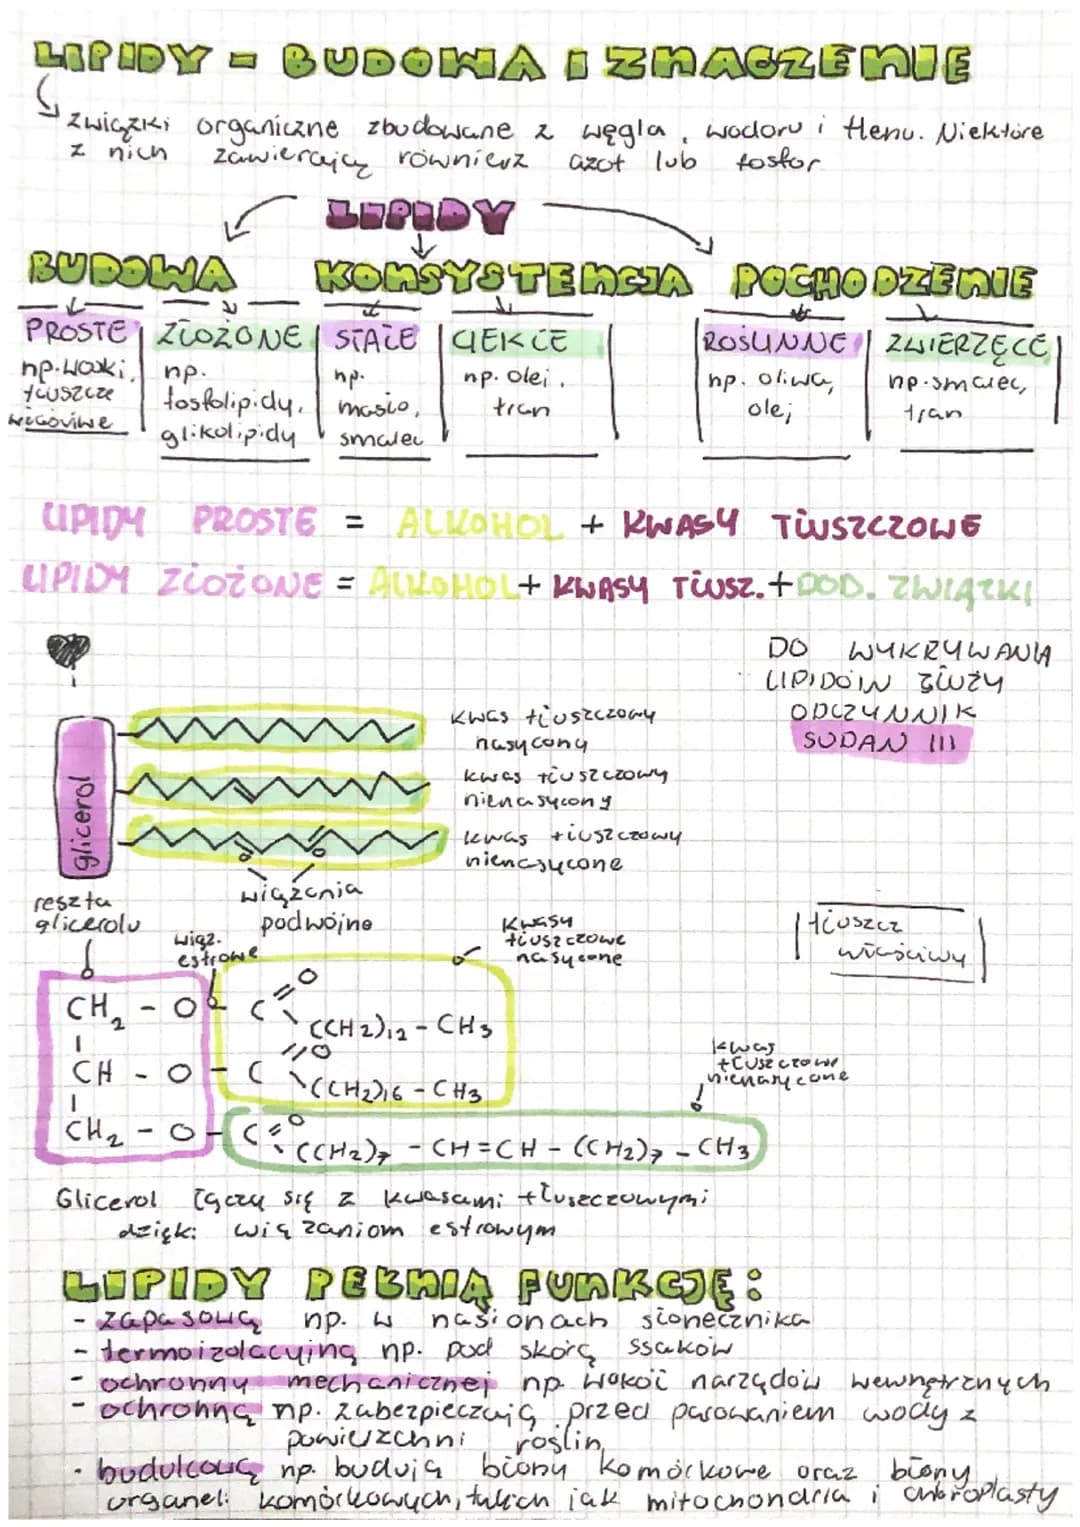 LIPIDY - BUDOWA I ZNACZENIE
związki organiczne zbudowane z węgla, wodoru i tlenu. Niektóre
z nich zawierają równierz azot lub fosfor
LIPIDY
BUDOWA KONSYSTENCJA POCHODZENIE
PROSTE ZŁOŻONE STAŁE CIEKŁE ROŚLINNE ZWIERZĘCE
np. woski, np. np. np. olej, np. oliwa, np. smalec,
tłuszcze fosfolipidy, masło, tran olej tran
właściwe glikolipidy smalec
LIPIDY PROSTE = ALKOHOL + KWASY TŁUSZCZOWE
LIPIDY ZŁOŻONE = ALKOHOL + KWASY TŁUSZ. + DOD. ZWIĄZKI
DO WYKRYWANIA
LIPIDÓW SŁUŻY
ODCZYNNIK
SUDAN III
glicerol
kwas tłuszczowy
nasycony
kwas tłuszczowy
nienasycony
kwas tłuszczowy
nienasycone
wiązania
podwójne
reszta
glicerolu
wiąz.
estrowe
kwasy
tłuszczowe
nasycone
tłuszcz
właściwy
CH2 - O - C =O
(CH2)12 - CH3
CH - O - C =O
(CH2)16 - CH3
kwas
tłuszczowe
nienasycone
CH2 - O - C =O
(CH2)7 - CH=CH - (CH2)7 - CH3
Glicerol łączy się z kwasami tłuszczowymi
dzięki wiązaniom estrowym
LIPIDY PEŁNIĄ FUNKCJĘ:
- zapasową np. w nasionach słonecznika
- termoizolacyjną np. pod skórą ssaków
- ochronny mechanicznej np. wokół narządów wewnętrznych
- ochronną np. zabezpieczają przed parowaniem wody z
powierzchni roślin
- budulcową np. budują błony komórkowe oraz błony
organelli komórkowych, takich jak mitochondria i chloroplasty